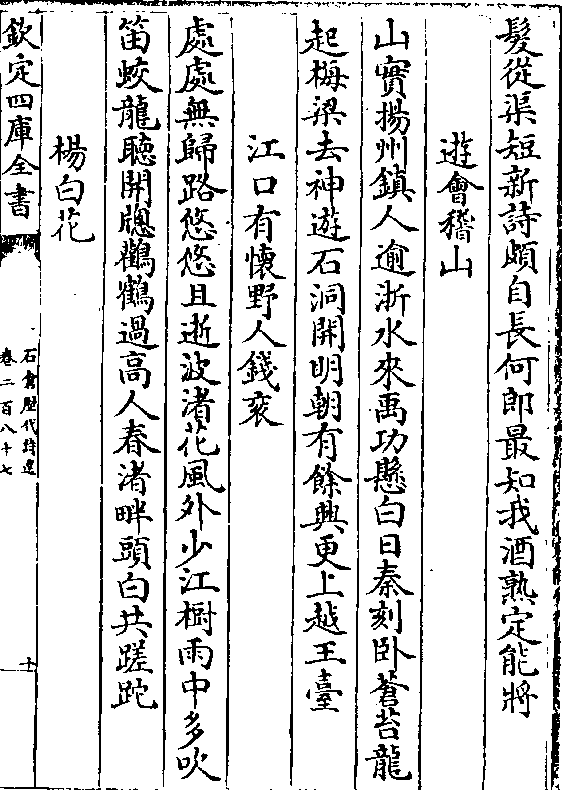 髮從渠短新詩頗自長何郎最知我酒熟定能將
遊會稽山
山實揚州鎮人逾浙水來禹功懸白日秦刻臥蒼苔龍
起梅梁去神遊石洞開明朝有餘興更上越王臺
江口有懷野人錢袞
處處無歸路悠悠且逝波渚花風外少江樹雨中多吹
笛蛟龍聽開牕鸛鶴過高人春渚畔頭白共蹉跎
楊白花
欽定四庫全書
石倉歷代詩選
卷二百八十七
十